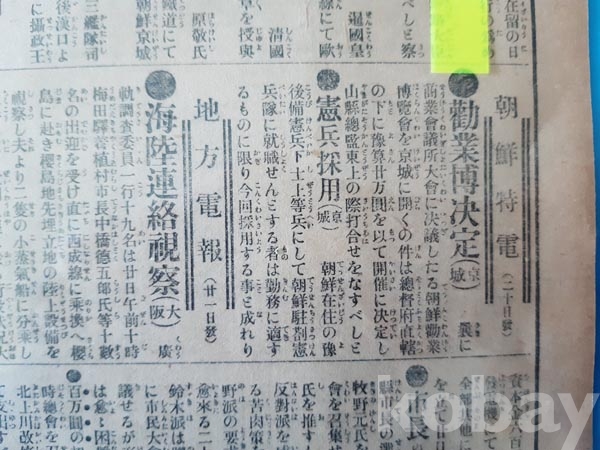 在留の日
行の爲め
べしと察
暹國皇
線にて歐
清國
章を授與
原敬氏
鐵道にて
朝鮮京城
三艦隊司
後漢口よ
に攝政王
朝鮮特電(二十日發)
勸業博決定(京城) 曩に
商業會議所大會に決議したる朝鮮勸業
博覽會を京城に開くの件は總督府直轄
の下に豫算廿萬圓を以て開催に決定し
山縣總監東上の際打合せをなすべしと
憲兵採用(京城) 朝鮮在住の豫
後備憲兵下士上等兵にして朝鮮駐剳憲
兵隊に就職せんとする者は勤務に適す
るものに限り今回採用する事と成れり
地方電報(廿一日發)
海陸連絡視察(大阪) 廣
軌調査委員一行十九名は廿日午前十時
梅田驛着植村市長中橋德五郎氏等十數
名の出迎を受け直に西成線に乘換へ櫻
島に赴き櫻島地先埋立地の陸上設備を
視察し夫より二隻の小蒸氣船に分乘し
全部其他に
市長
縣市長の
會を召集
牧野元氏を
氏を推す
反對派を
る苦肉策を
野派の要求
愈來る二
鈴木派は
に市民大會
議せるが
百万圓の
時總會を
北上川改修
kobay